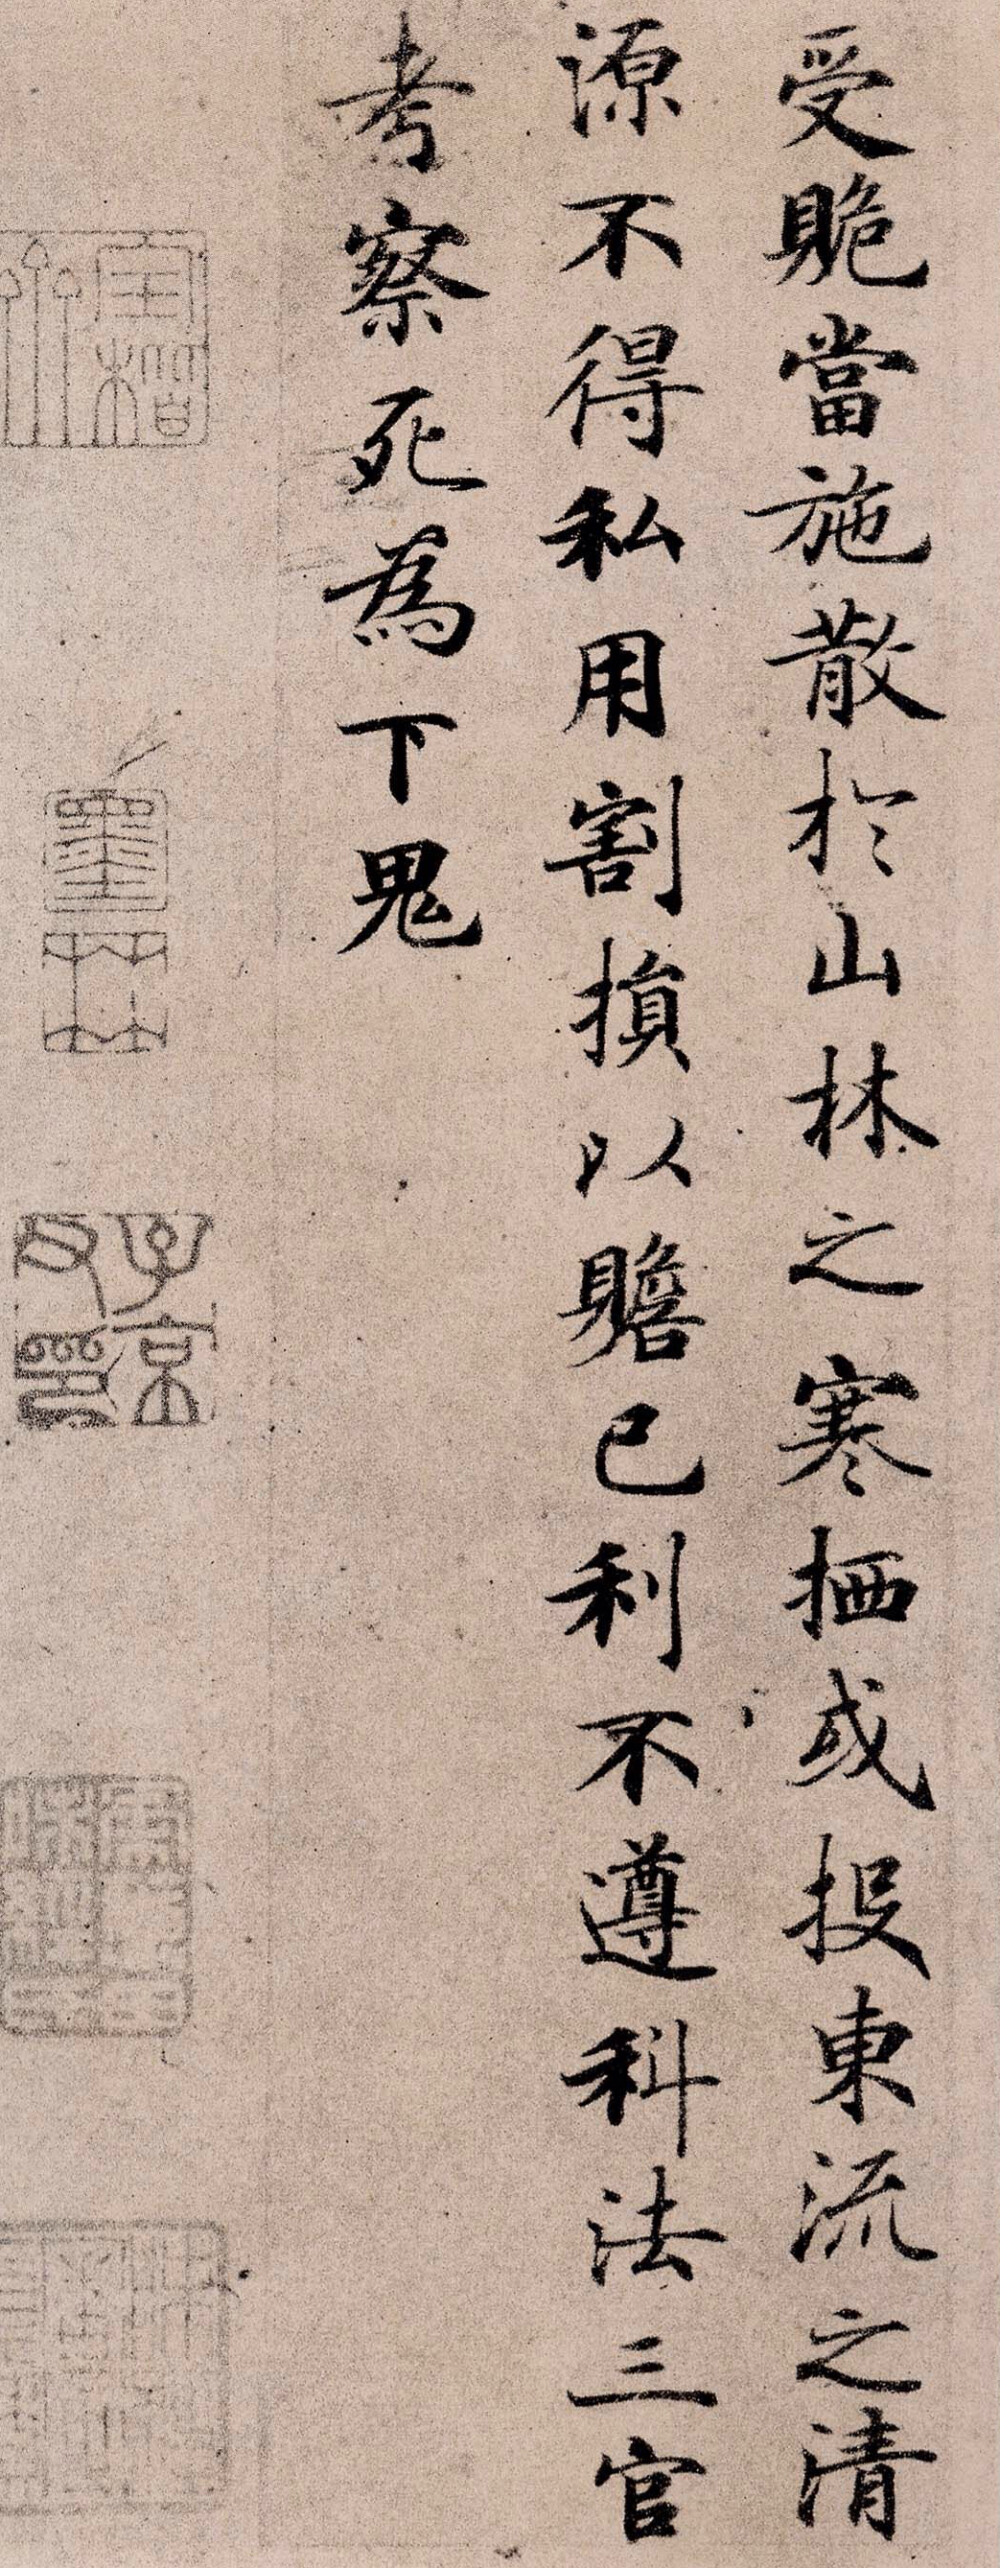 受貤當施散於山林之寒栖或投東流之清
源不得私用割損以贍己利不遵科法三官
考察死為下鬼
墨林
子京父印